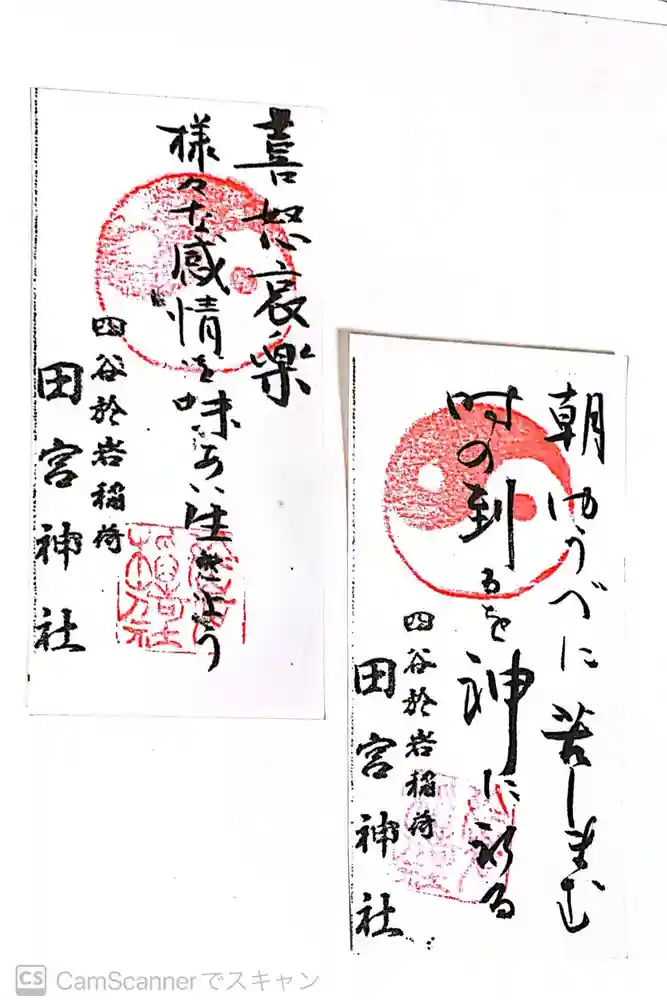 喜怒哀楽
様々な感情を味あい生きよう
四谷於岩稲荷
田宮神社
朝ゆうべに苦しまむ
時の到るを神に祈る
四谷於岩稲荷
田宮神社
CS CamScannerでスキャン